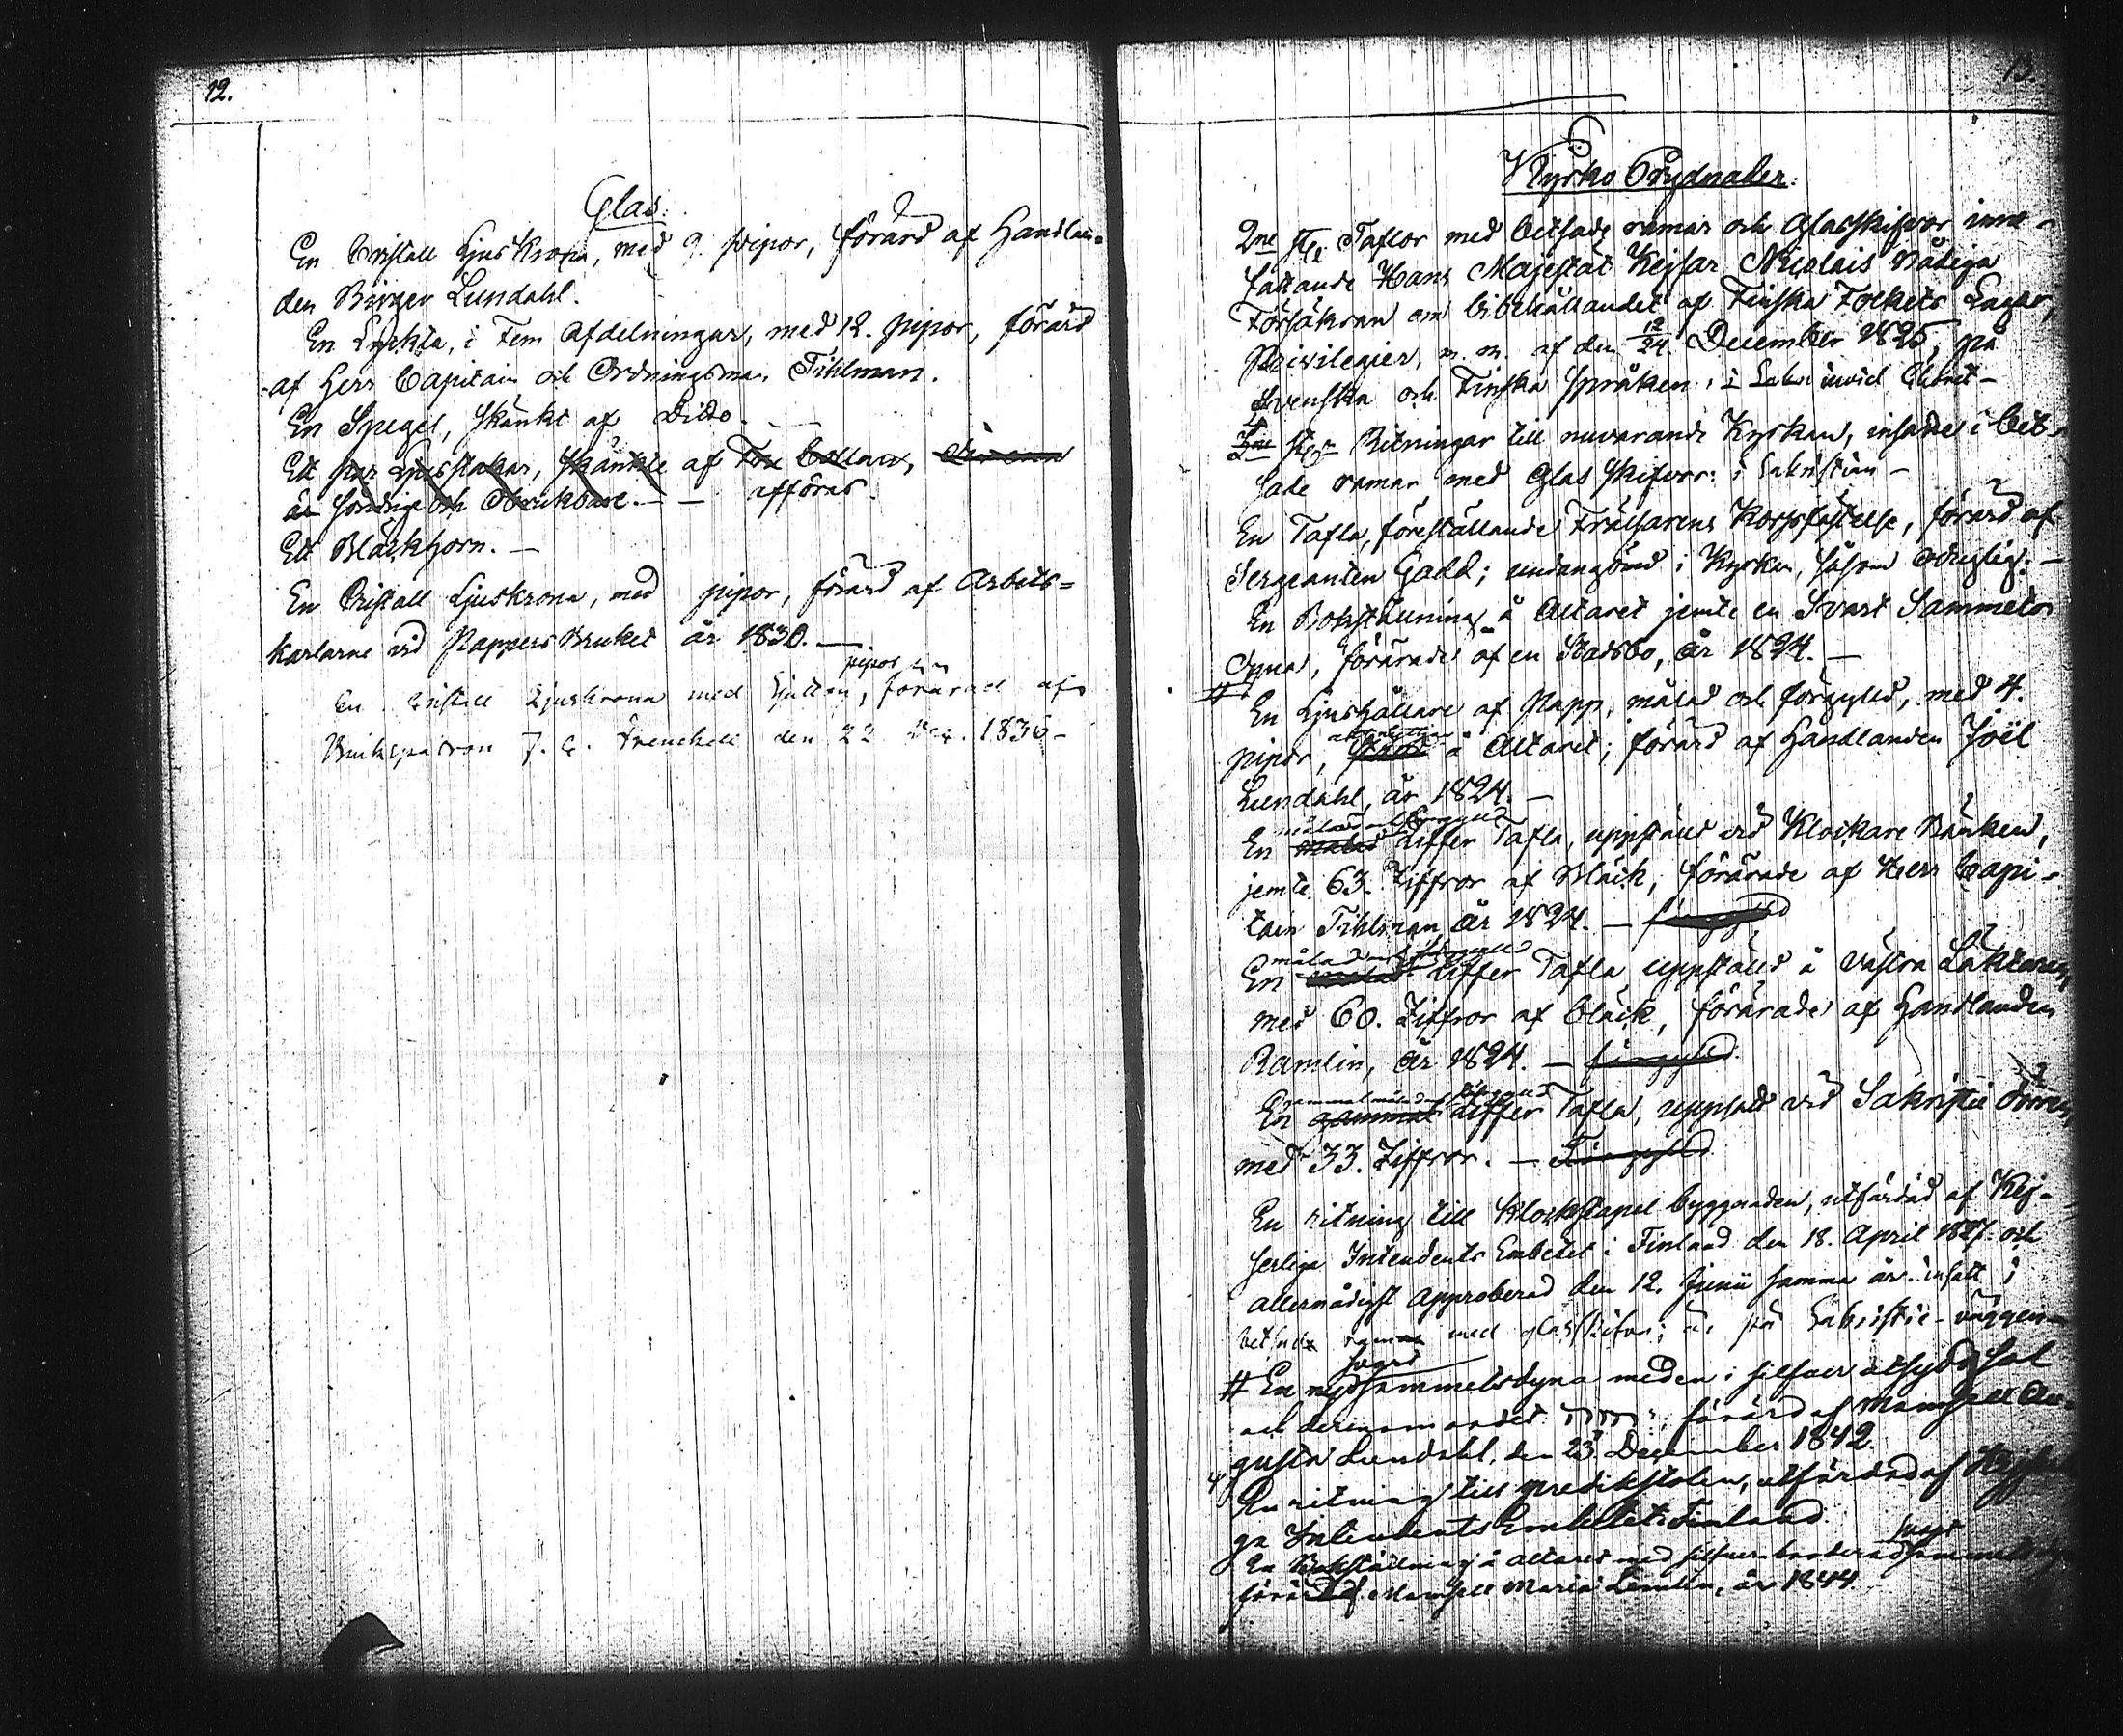 12.
Glas:
En Cristall Ljus Krona, med 9. pipor, förärd af Handlan-
den Birger Lundahl.
En Lyckta, i Fem Afdelningar, med 12. pipor, förärd
af Herr Capitain och Ordningsman Tihlman.
En Spegel, skänkt af Dito.
Ett par Ljusstakar, skänkte af
är sönderige och Obrukbare. — afföras.
Ett Bläckhorn. —
En Cristall Ljuskrona, med pipor, förärd af Arbets-
karlarne vid Pappers Bruket år 1830. —
pipor
En Cristall Ljuskrona med sjutton, förärad af
Brukspatron J. C. Frenckell den 22 Dec. 1836 -
13.
Kyrko Prydnader:
2ne st. Taflor med betsade ramar och Glasskifvor inne-
fattande Hans Majestät Kejsar Nicolais nådiga
Försäkran om bibehållandet af Finska Folkets Lagar,
Privilegier, m. m. af den 12/24 December 1825, på
Svenska och Finska Språken, i
st. Ritningar till nuvarande Kyrkan, insatte i bet-
sade ramar med Glas skifvor: i Sakristian -
En Tafla, föreställande Frälsarens Korsfästelse, förärd af
Sergeanten Gadd; undangömd i Kyrkan, såsom oduglig: -
En Bokställning å Altaret jemte en Svart Sammets
Dyna, förärade af en Stadsbo, år 1824. —
# En Ljushållare af Papp, målad och förgyld, med 4.
pipor, å Altaret; förärd af Handlanden Joël
Lundahl, år 1824. —
målad och förgylld
En målad Ziffer Tafla, uppstäld vid Klockare Bänken,
jemte 63. Ziffror af Bläck, förärade af Herr Capi-
tain Tihlman år 1824. — förgylld
målad och förgylld
En målad Ziffer Tafla uppstäld å västra Läktaren,
med 60. Ziffror af bläck, förärade af Handlanden
Ramlin, år 1824. — förgylld
gammal målad och förgylld
En gammal Ziffer Tafla, uppsatt vid Sakristie dörren,
med 33. Ziffror. — Förgylld
En ritning till Klockstapel byggnaden, utfärdad af Kej-
serliga Intendents Embetet i Finland den 18. April 1827. och
allernådigst approberad den 12. Junii samma år. insatt i
betsad ram med glasskifva; är på Sakristie-väggen
svart
# En ny sammetsdyna med en i silfver utsydd sol
och derinom ordet förärd af Mamsell Au-
gusta Lundahl, den 23 December 1842.
En ritning till predikstolen, utfärdad af Kejserli-
ga Intendents Embetet i Finland.
svart
En Bokställning å altaret med silfver borderad sammets
förärd af Mamsell Maria år 1844.